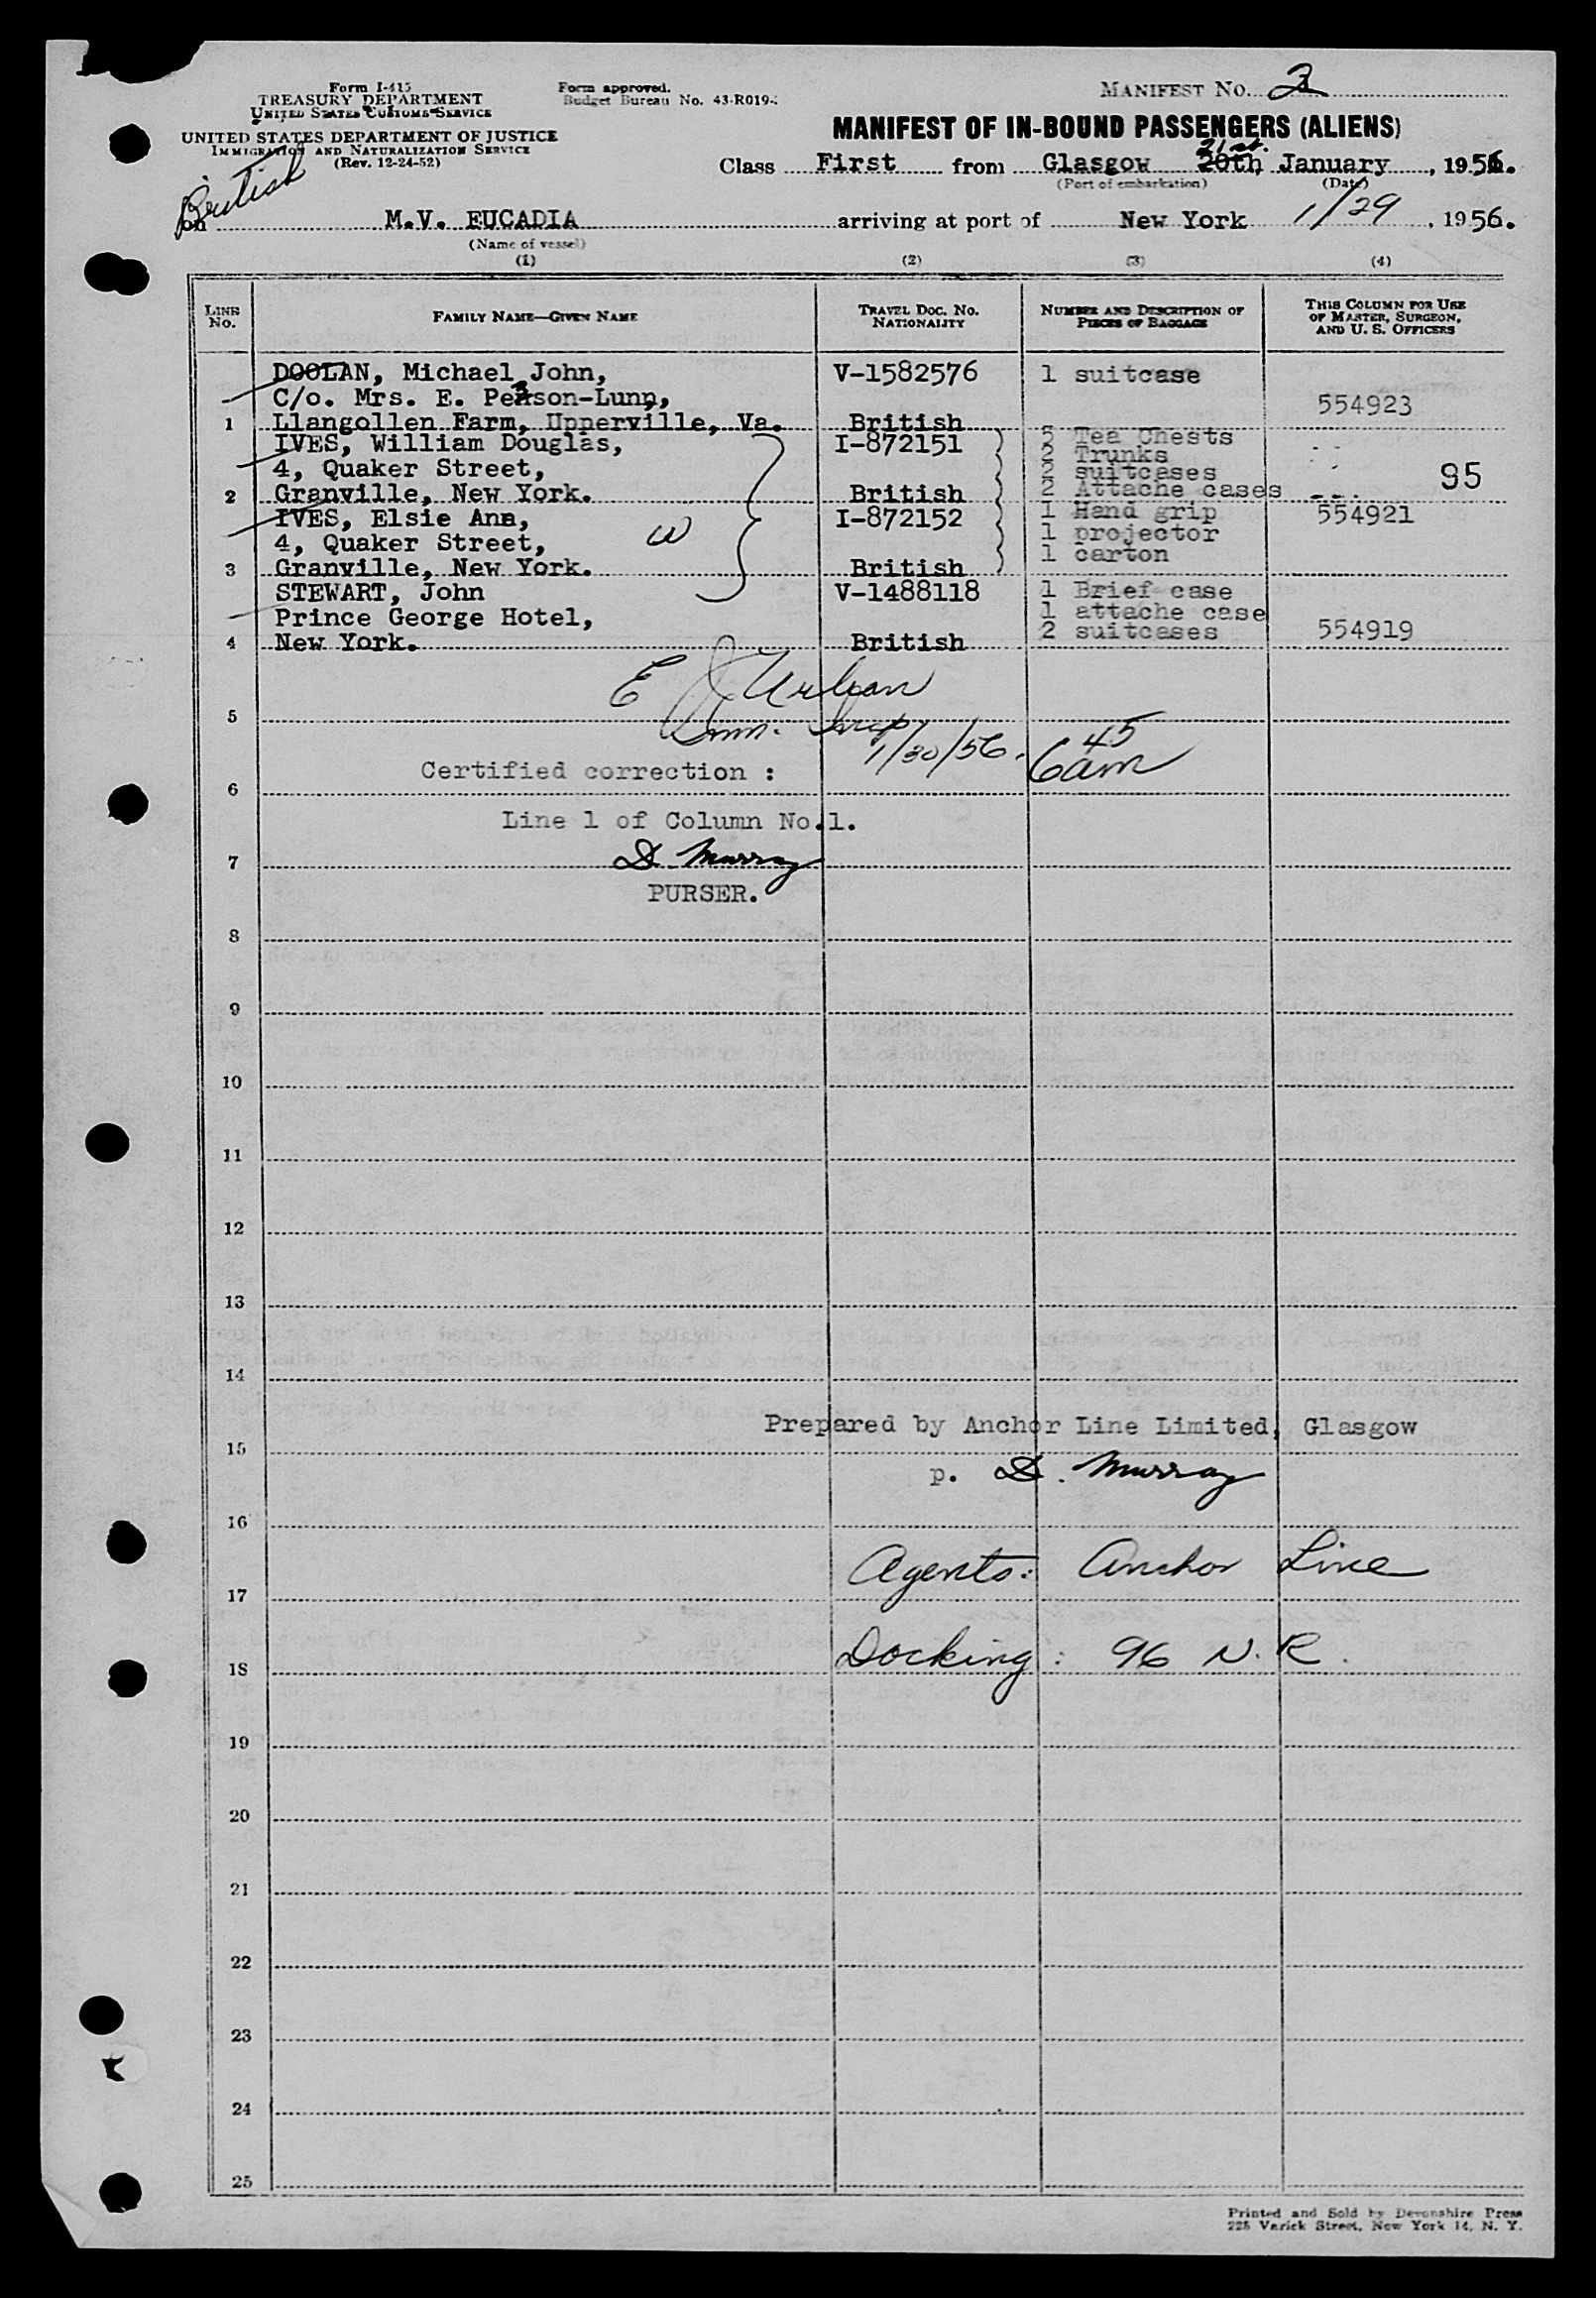 Form I-415
TREASURY DEPARTMENT
UNITED STATES CUSTOMS SERVICE
UNITED STATES DEPARTMENT OF JUSTICE
IMMIGRATION AND NATURALIZATION SERVICE
(Rev. 12-24-52)
Form approved.
Budget Bureau No. 43-R019-
MANIFEST NO. 2
MANIFEST OF IN-BOUND PASSENGERS (ALIENS)
21st.
Class First from Glasgow 20th January, 1956.
(Port of embarkation) (Date)
British
on M.V. EUCADIA arriving at port of New York 1/29, 1956.
(Name of vessel)
(1) (2) (3) (4)
LINE NO.
FAMILY NAME—GIVEN NAME
TRAVEL DOC. NO. NATIONALITY
NUMBER AND DESCRIPTION OF PIECES OF BAGGAGE
THIS COLUMN FOR USE OF MASTER, SURGEON, AND U. S. OFFICERS
DOOLAN, Michael John, V-1582576 1 suitcase
C/o. Mrs. E. Pearson-Lunn, 554923
1 Llangollen Farm, Upperville, Va. British
IVES, William Douglas, I-872151 5 Tea Chests
2 Trunks
4, Quaker Street, 2 suitcases 95
2 Granville, New York. British 2 Attache cases
IVES, Elsie Ann, I-872152 1 Hand grip 554921
4, Quaker Street, W 1 projector
3 Granville, New York. British 1 carton
STEWART, John V-1488118 1 Brief case
Prince George Hotel, 1 attache case
4 New York. British 2 suitcases 554919
E J Urban
5
Imm. Insp
1/30/56. 6 45 am
Certified correction :
6
Line 1 of Column No.1.
7 D. Murray
PURSER.
8
9
10
11
12
13
14
Prepared by Anchor Line Limited, Glasgow
15
p. D. Murray
16
Agents: Anchor Line
17
Docking: 96 N. R.
18
19
20
21
22
23
24
25
Printed and Sold by Devonshire Press
225 Varick Street, New York 14, N. Y.